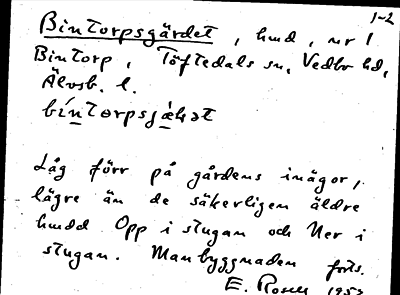 1-2
Bintorpsgärdet, hmd, nr 1
Bintorp, Töftedals sn, Vedbo hd,
Älvsb. l.
bíntorpsjæ̀ɫət
Låg förr på gårdens inägor,
lägre än de säkerligen äldre
hmdd Opp i stugan och Ner i
stugan. Manbyggnaden forts.
E. Rosell 1952